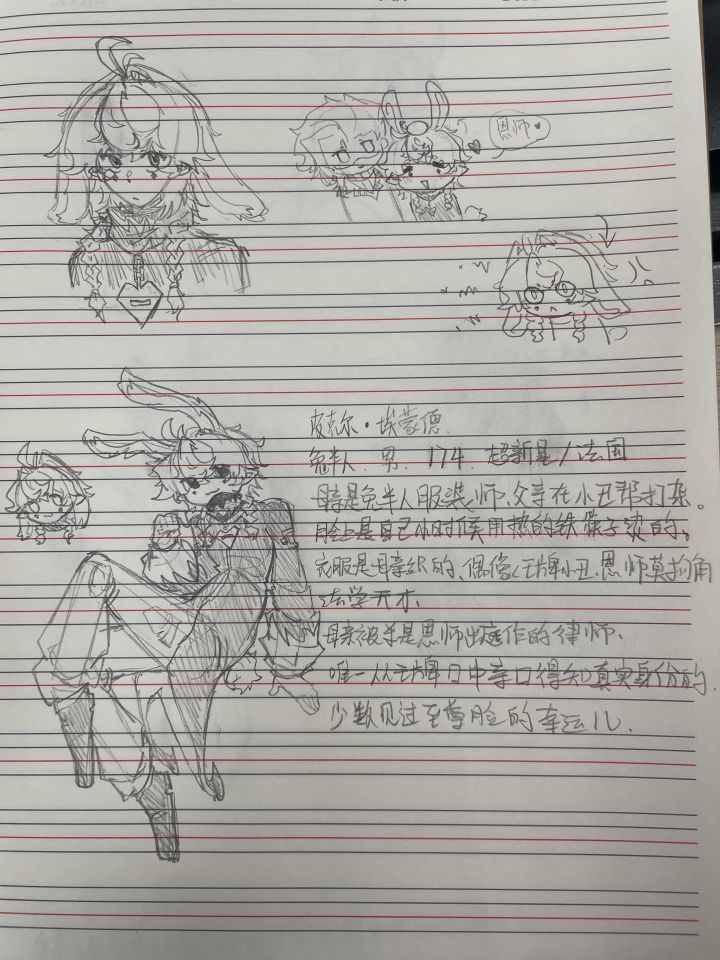 恩师
皮克尔·埃蒙德
兔半人、男、174、超新星/法国
母亲是兔半人服装师,父亲在小丑帮打杂。
脸上是自己小时候用热的铁筷子烫的。
衣服是母亲织的、偶像(王牌小丑、恩师莫拘角
法学天才.
母亲被杀是恩师出庭作的律师.
唯一从王牌口中亲口得知真实身份的.
少数见过至尊脸的幸运儿.